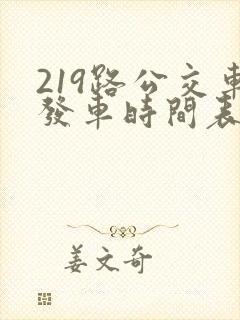 219路公交車
發車時間表
姜文奇